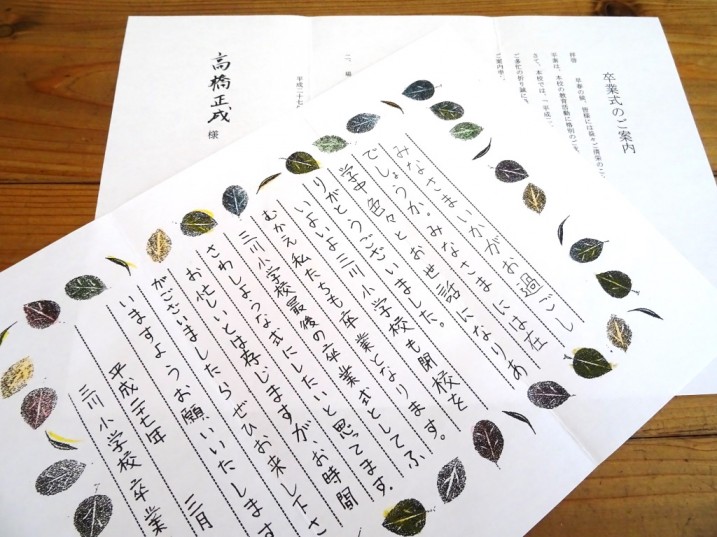 卒業式のご案内
拝啓
早春の候、皆様には益々ご清栄のこ
卒業は、本校の教育活動に格別のご支
さて、本校では、「平成二
ご多忙の折り誠に
ご案内申
二、場
平成二十七
高橋正成様
みなさまいかがお過ごし
でしょうか。みなさまには在
学中色々とお世話になりあ
りがとうございました。
いよいよ三川小学校も閉校を
むかえ私たちも卒業となります。
三川小学校最後の卒業式としてふ
さわしような式にしたいと思ってます。
お忙しいとは存じますが、お時間
がございましたらぜひお来し下さ
いますようお願いいたします
平成二十七年 三月
三川小学校 卒業